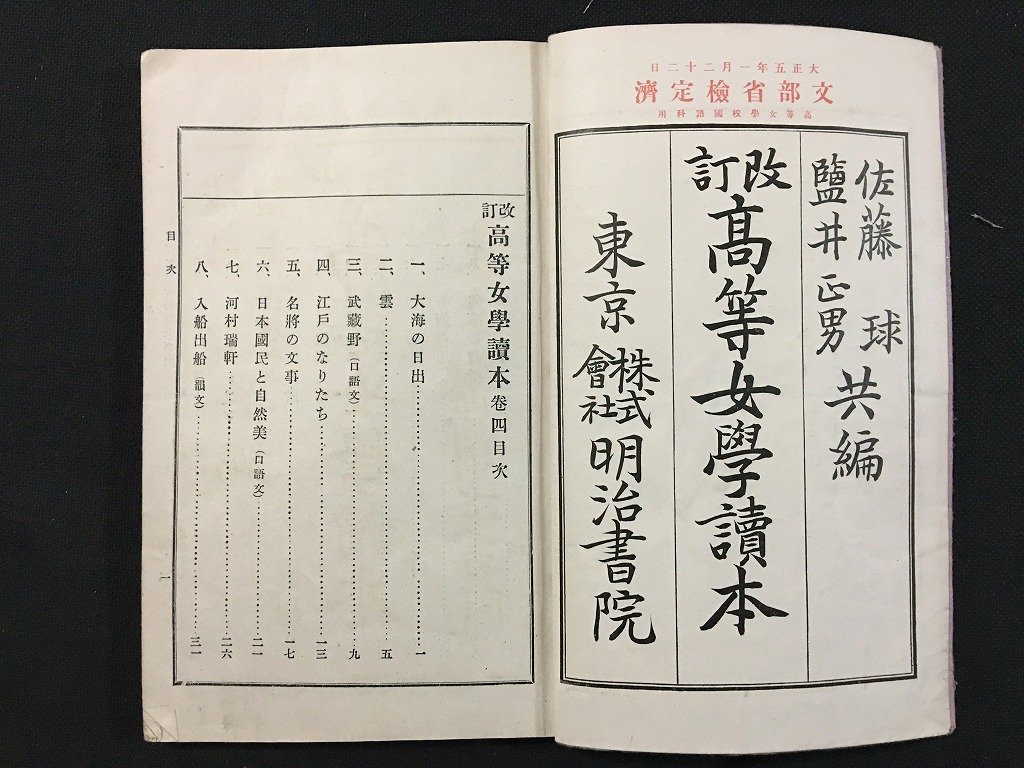 大正五年一月二十二日
文部省檢定濟
高等女學校國語科用
佐藤球
鹽井正男
共編
改訂
高等女學讀本
東京
株式會社
明治書院
改訂高等女學讀本卷四目次
一、大海の日出…………一
二、雲…………五
三、武藏野(口語文)…………九
四、江戶のなりたち…………一三
五、名將の文事…………一七
六、日本國民と自然美(口語文)…………二一
七、河村瑞軒…………二六
八、入船出船(韻文)…………三一
目次
一